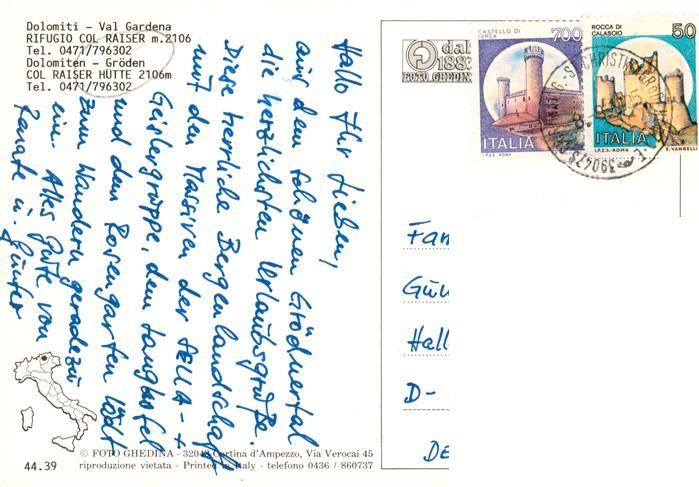 Dolomiti - Val Gardena
RIFUGIO COL RAISER m.2106
Tel. 0471/796302
Dolomiten - Gröden
COL RAISER HÜTTE 2106m
Tel. 0471/796302
Hallo Ihr Lieben,
aus dem schönen Grödnertal
die herzlichsten Urlaubsgrüße.
Diese herrliche Bergenlandschaft
mit den Massiven der SELLA- +
Geislergruppe, dem Langkofel
und dem Rosengarten lädt
zum Wandern geradezu
ein. Alles Gute von
Renate u. Günter
dal
1882
FOTO GHEDINA
CASTELLO DI
IVREA
700
ITALIA
I.P.Z.S. ROMA
ROCCA DI
CALASCIO
50
ITALIA
I.P.Z.S.-ROMA E. VANGELLI
39047 S. CHRISTINA
Fam
Gün
Hall
D-
DE
44.39
© FOTO GHEDINA - 32043 Cortina d'Ampezzo, Via Verocai 45
riproduzione vietata - Printed in Italy - telefono 0436 / 860737